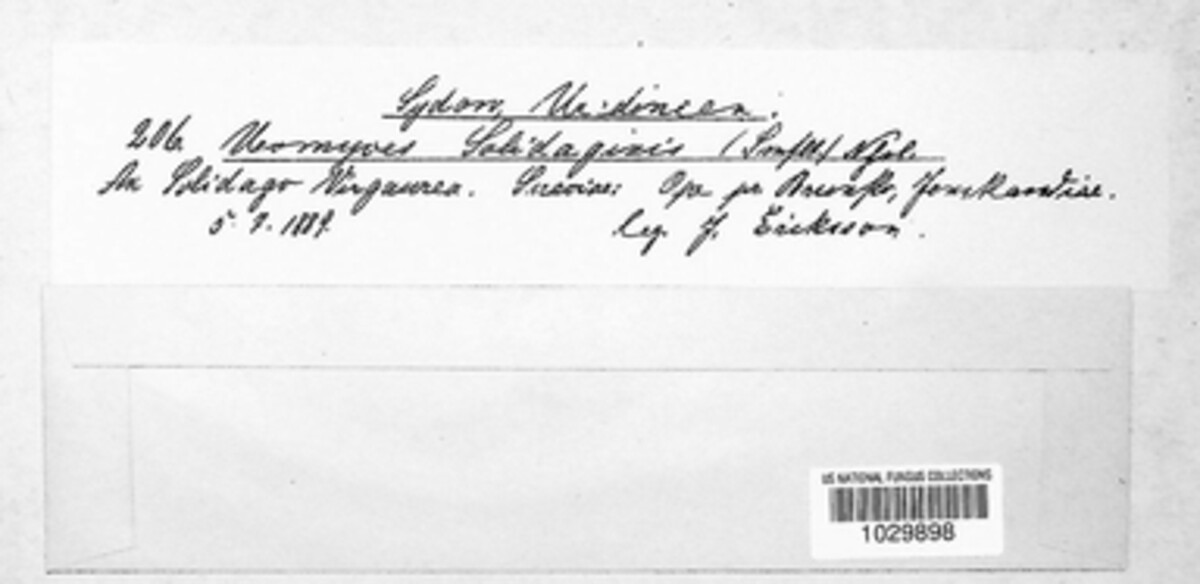 Sydow, Uredineen.
206. Uromyces Solidaginis (Smflt) Nssl.
An Solidago Virgaurea. Sueciae: Ope pr
5. 7. 1889. leg. J. Eriksson.
US NATIONAL FUNGUS COLLECTIONS
1029898